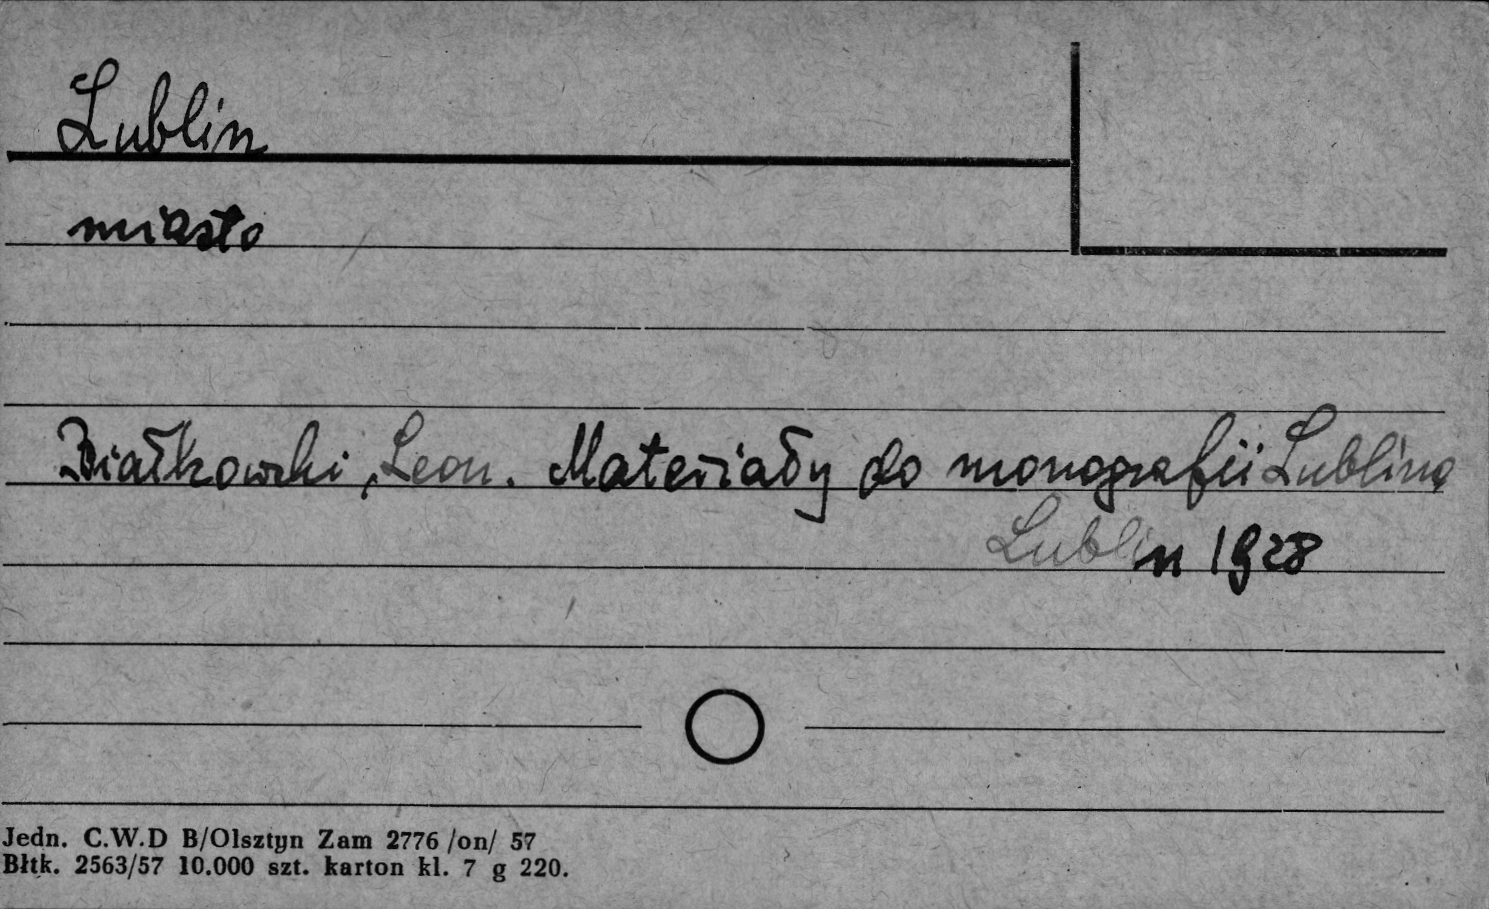 Lublin
miasto
Białkowski, Leon. Materiały do monografii Lublina
Lublin 1928
Jedn. C.W.D B/Olsztyn Zam 2776 /on/ 57
Błtk. 2563/57 10.000 szt. karton kl. 7 g 220.